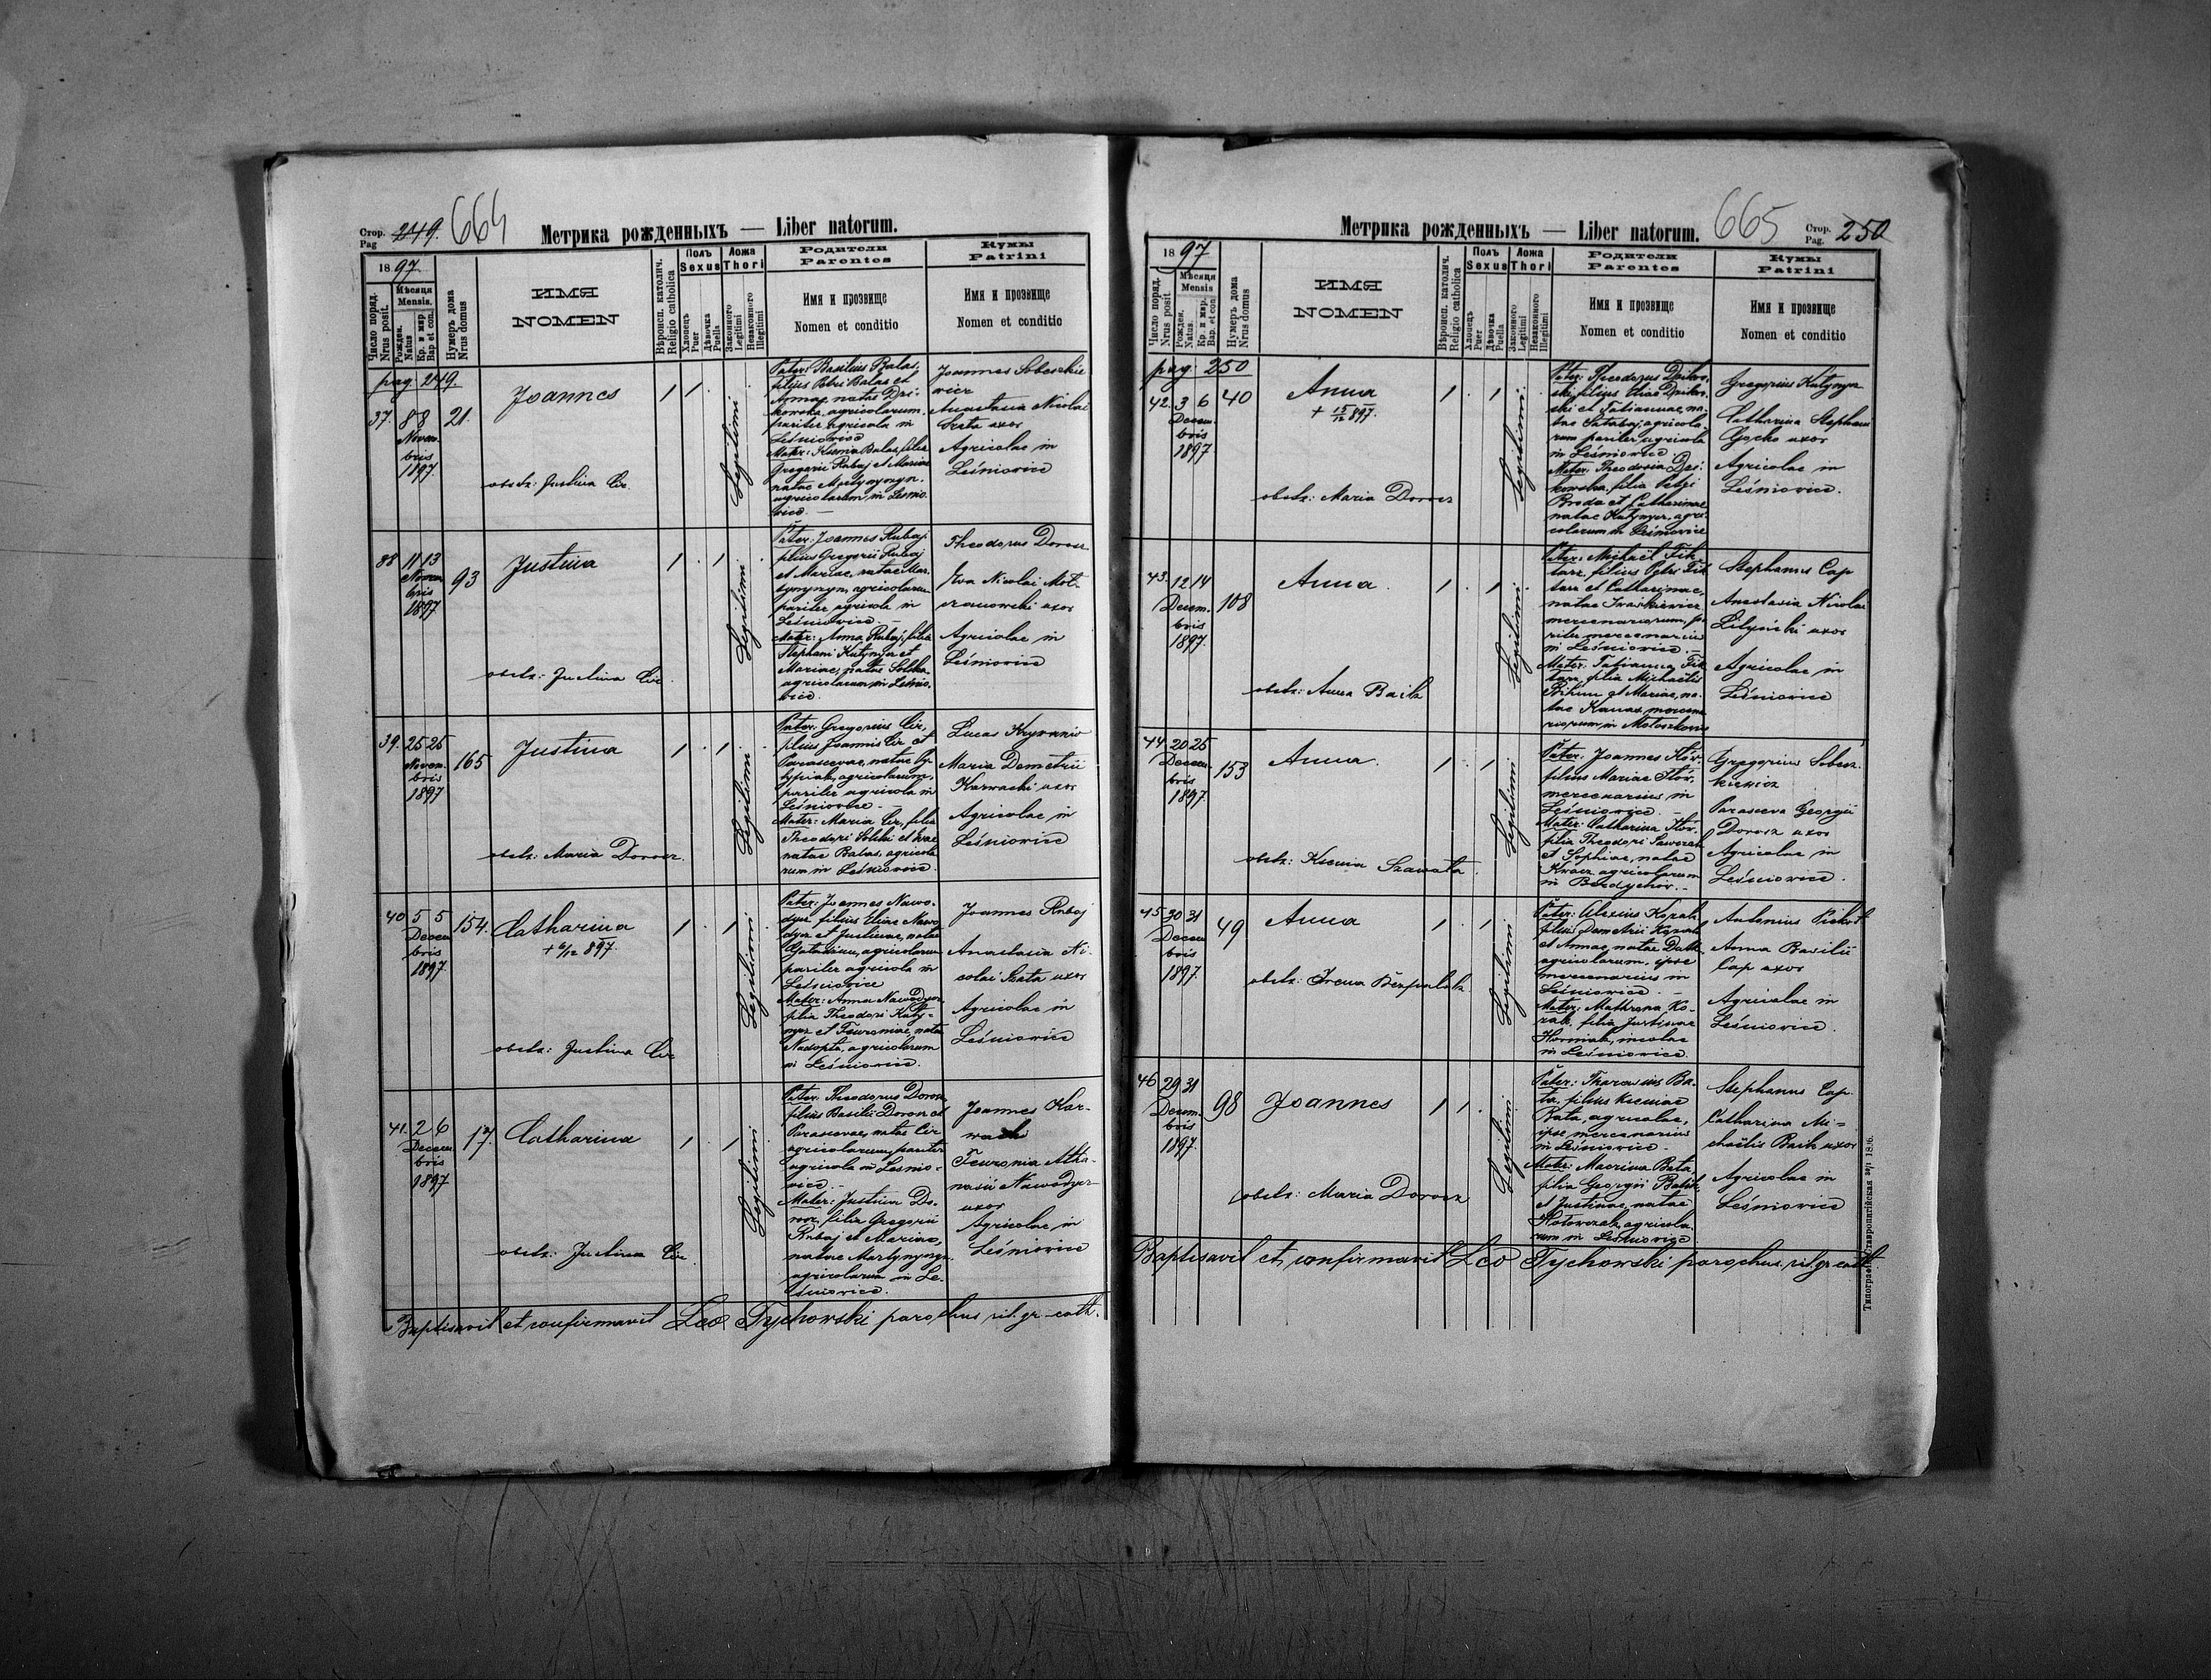 Стор. 249. 664
Pag
Метрика рожденныхъ — Liber natorum.
1897
Число поряд.
Nrus posit.
Мѣсяця
Mensis.
Рожден.
Natus
Кр. и мѵр.
Bap et con.
Нумеръ дома
Nrus domus
ИМЯ
NOMEN
Вѣроисп. католич.
Religio catholica
Полъ
Sexus
Хлопець
Puer
Дѣвочка
Puella
Ложа
Thori
Законного
Legitimi
Незаконного
Illegitimi
Родители
Parentes
Имя и прозвище
Nomen et conditio
Кумы
Patrini
Имя и прозвище
Nomen et conditio
pag. 249.
37. 8 8 21.
Novem-
bris
1897.
Joannes
obstr: Justina Cir.
1 1
Legitimi
Pater: Basilius Balas,
filius Petri Balas et
Annae, natae Dzi-
kowska, agricolarum,
pariter agricola in
Leśniowice
Mater: Ksenia Balas, filia
Gregorii Rubaj et Mariae
natae Martynyszyn,
agricolarum in Leśnio-
wice. —
Joannes Sobeszkie
wicz
Anastasia Nicolai
Szata uxor
Agricolae in
Leśniowice
38 11 13 93
Novem
bris
1897.
Justina
obstr: Justina Cir.
1 1
Legitimi
Pater: Joannes Rubaj,
filius Gregorii Rubaj
et Mariae, natae Mar-
tynyszyn, agricolarum
pariter agricola in
Leśniowice. —
Mater: Anna Rubaj, filia
Stephani Kutynyer et
Mariae, natae
agricolarum in Leśnio-
wice.
Theodorus Dorosz
Eva Nicolai Mot-
uxor
Agricolae in
Leśniowice
39. 25 25 165
Novem-
bris
1897
Justina
obstr: Maria Dorosz.
1 1
Legitimi
Pater: Gregorius Cir,
filius Joannis Cir et
Parascevae, natae
agricolarum,
pariter agricola in
Leśniowice. —
Mater: Maria Cir, filia
Theodori et Evae
natae Balas, agricola
rum in Leśniowice.
Lucas
Maria Demetrii
Karwacki uxor
Agricolae in
Leśniowice
40 5 5 154.
Decem
bris
1897.
Catharina
+ 6/12 897.
obstr: Justina Cir
1 1
Legitimi
Pater: Joannes Nawo-
dyer filius Eliae Nawo
dyer et Justinae, natae
agricolarum
pariter agricola in
Leśniowice
Mater: Anna Nawodyer,
filia Theodori Kuty-
nyer et Feuroniae, natae
agricolarum
in Leśniowice.
Joannes Rubaj
Anastasia Ni-
colai Szata uxor
Agricolae in
Leśniowice
41. 2 6 17.
Decem
bris
1897
Catharina
obstr: Justina Cir.
1 1
Legitimi
Pater: Theodorus Dorosz,
filius Basilii Dorosz et
Parascevae, natae Cir
agricolarum, pariter
agricola in Leśnio-
wice. —
Mater: Justina Do-
rosz, filia Gregorii
Rubaj et Mariae,
natae Martynyszyn
agricolarum in Le-
śniowice.
Joannes Kar-
wacki
Feuronia Atha-
nasii Nawodyer
uxor
Agricolae in
Leśniowice
Baptisavit et confirmavit Leo Tychowski parochus rit. gr-cath.
Метрика рожденныхъ — Liber natorum. 665
Стор. 250
Pag.
1897
Число поряд.
Nrus posit.
Мѣсяця
Mensis
Рожден.
Natus.
Кр. и мѵр.
Bap. et con
Нумеръ дома
Nrus domus
ИМЯ
NOMEN
Вѣроисп. католич.
Religio catholica
Полъ
Sexus
Хлопець
Puer
Дѣвочка
Puella
Ложа
Thori
Законного
Legitimi
Незаконного
Illegitimi
Родители
Parentes
Имя и прозвище
Nomen et conditio
Кумы
Patrini
Имя и прозвище
Nomen et conditio
pag. 250
42. 3 6 40
Decem-
bris
1897
Anna
+ 15/12 897.
obstr: Maria Dorosz
1 1
Legitimi
Pater: Theodorus Dzikow-
ski, filius Eliae Dzikow-
ski et Tatiannae, na-
tae agricola-
rum pariter, agricola
in Leśniowice
Mater: Theodosia Dzi-
kowska, filia Petri
Broda et Catharinae
natae Kutynyer, agri-
colarum in Leśniowice
Gregorius Kutynyer
Catharina Stephani
uxor
Agricolae in
Leśniowice.
43. 12 14 108
Decem-
bris
1897.
Anna.
obstr: Anna Baik
1 1
Legitimi
Pater: Michaël
filius Petri
et Catharinae,
natae Iwaskiewicz
mercenariorum, pa-
riter mercenarius
in Leśniowice. —
Mater: Tatianna
filia Michaëlis
et Mariae, na-
tae mercena
riorum in
Stephanus Cap
Anastasia Nicolai
uxor
Agricolae in
Leśniowice
44 20 25 153
Decem
bris
1897.
Anna.
obstr: Ksenia Szawata.
1 1
Legitimi
Pater: Joannes
filius Mariae
mercenarius in
Leśniowice. —
Mater: Catharina
filia Theodori
et Sophiae, natae
agricolarum
in Berdychów. —
Gregorius Sobesz-
kiewicz
Parasceva Georgii
Dorosz uxor
Agricolae in
Leśniowice.
45 30 31 49
Decem
bris
1897.
Anna
obstr: Irena
1 1
Legitimi
Pater: Alexius
filius Demetrii
et Annae, natae
agricolarum, ipse
mercenarius in
Leśniowice. —
Mater: Mathrona
filia Justinae
incolae
in Leśniowice.
Antonius
Anna Basilii
Cap uxor
Agricolae in
Leśniowice.
46 29 31 98
Decem-
bris
1897.
Joannes
obstr: Maria Dorosz
1 1
Legitimi
Pater: Tharasius Ba-
ta, filius Kseniae
Bata, agricolae,
ipse mercenarius
in Leśniowice. —
Mater: Macrina Bata,
filia Georgii
et Justinae, natae
agricola-
rum in Leśniowice
Stephanus Cap.
Catharina Mi-
chaëlis Baik uxor
Agricolae in
Leśniowice
Baptisavit et confirmavit Leo Tychowski parochus rit. gr-cath.